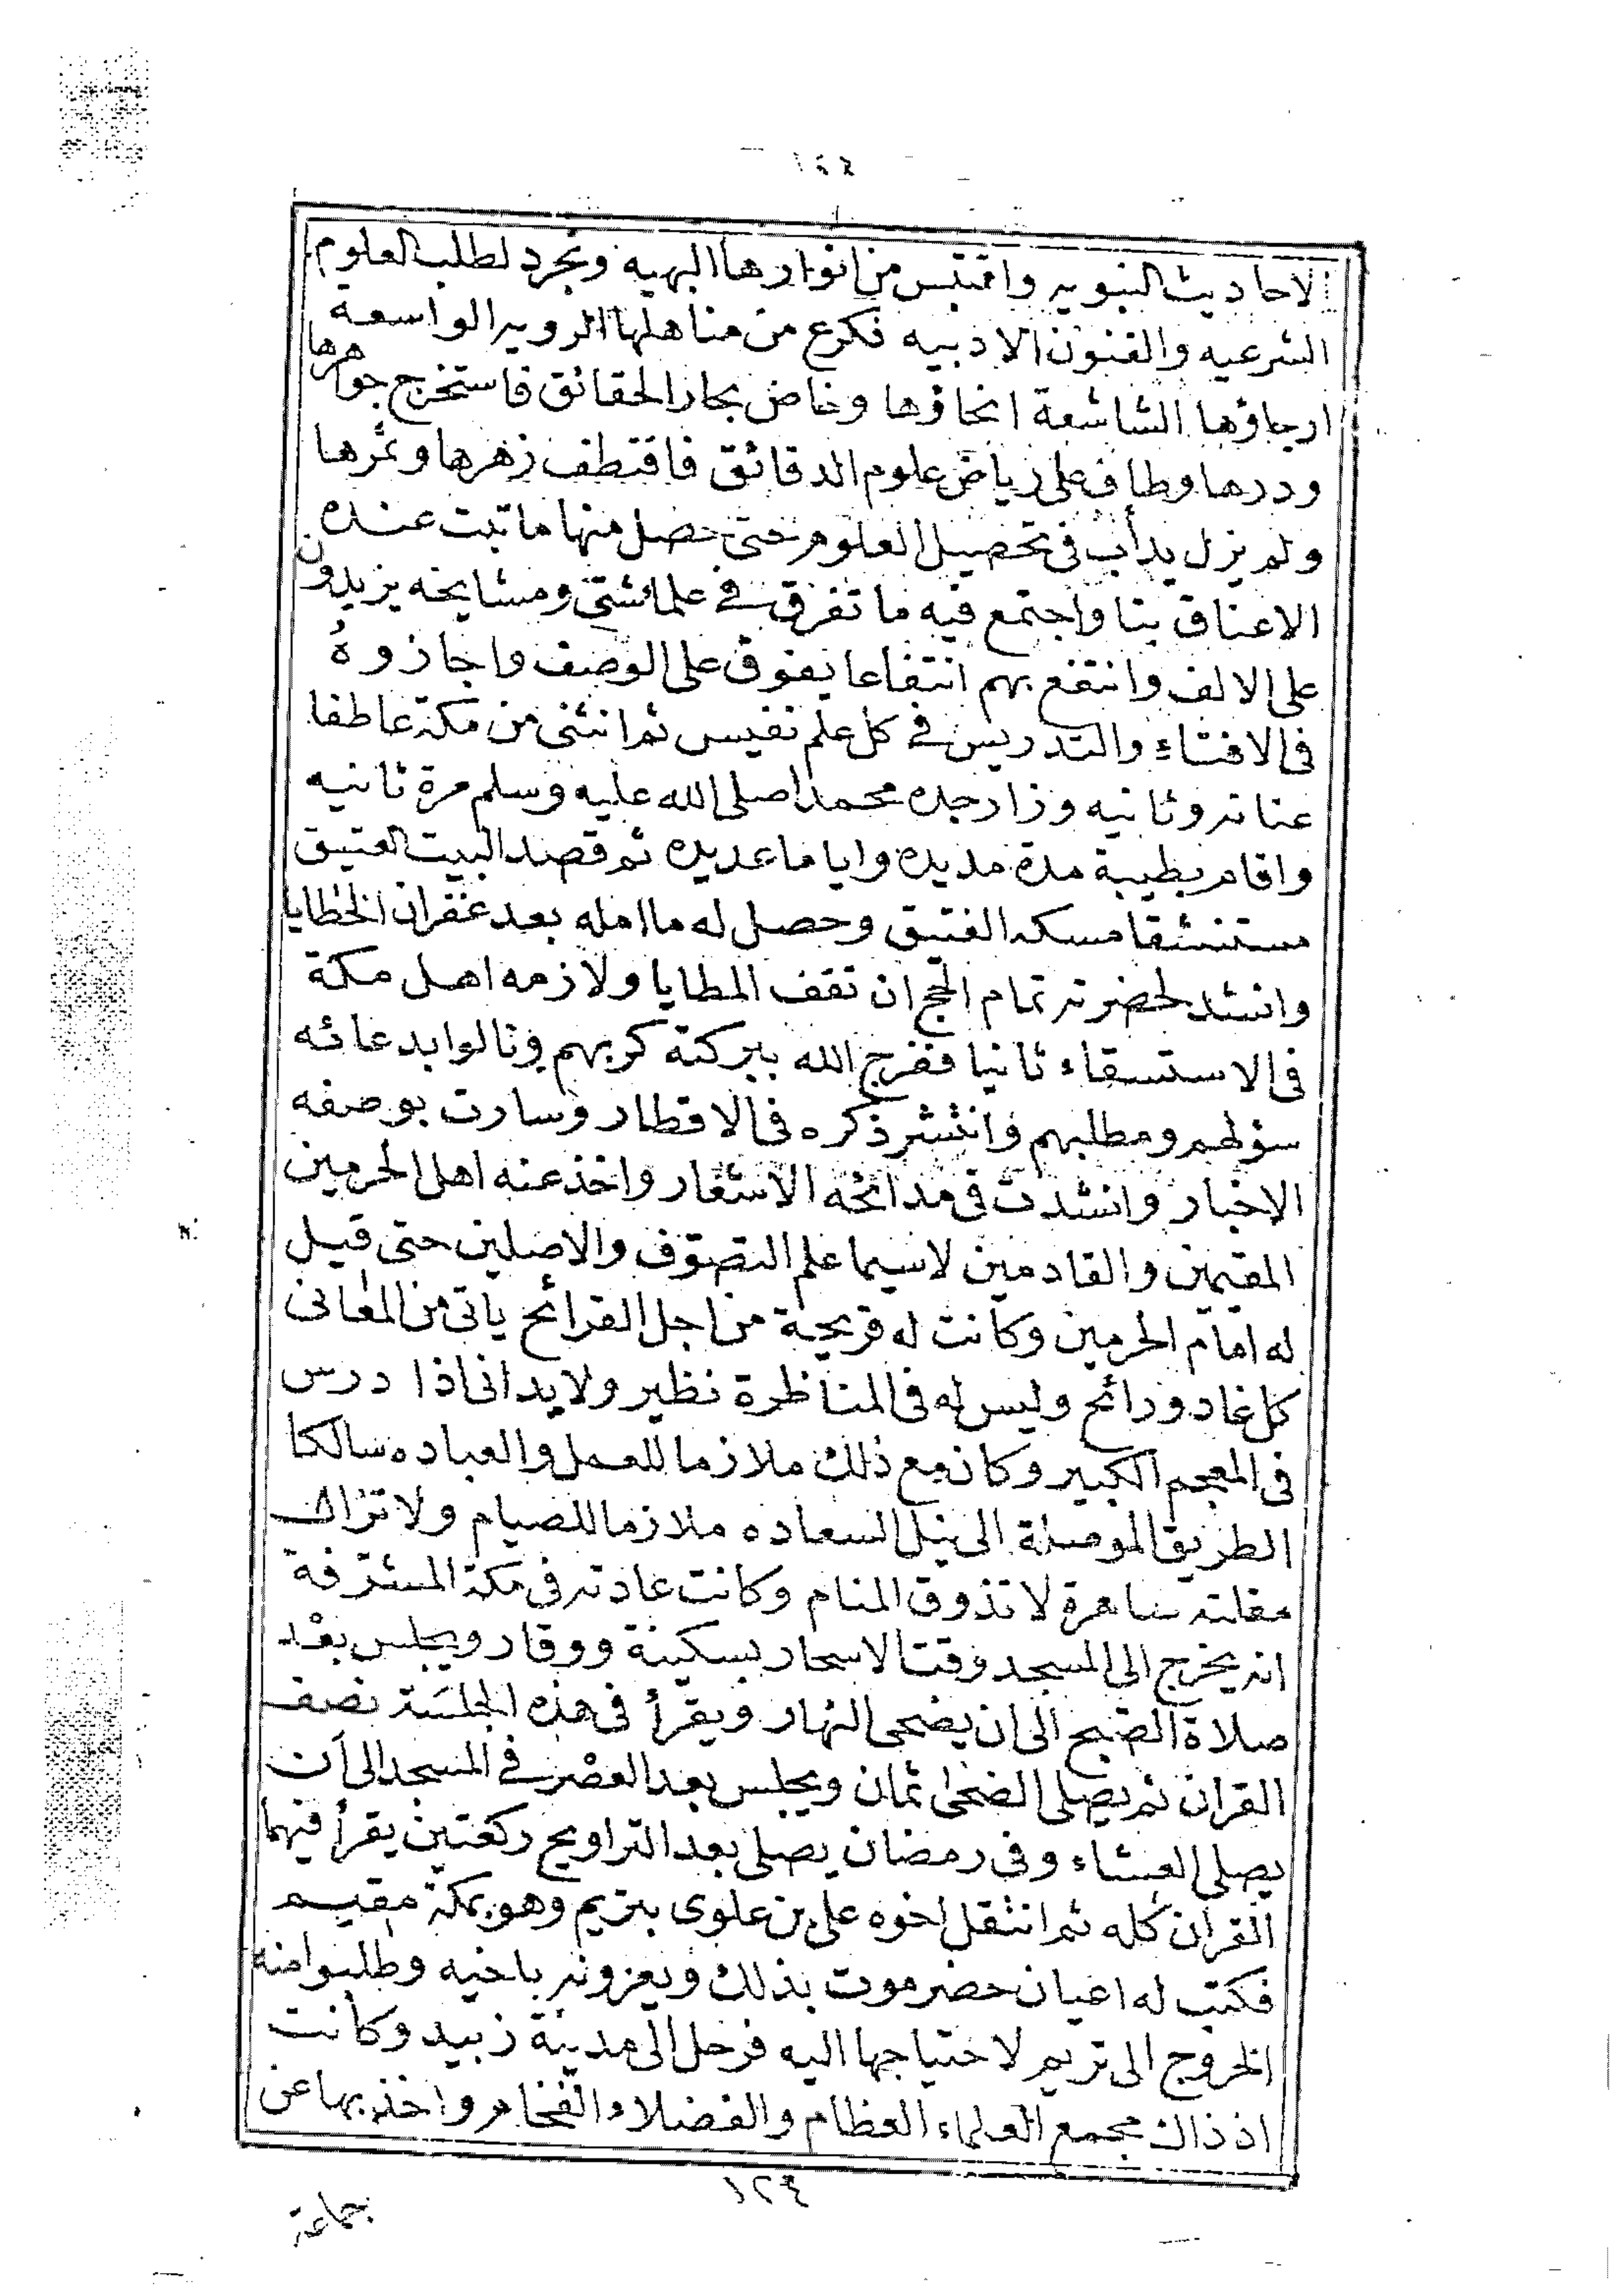 الاحاديث النبويه واقتبس من انوارها البهيه وتجرد لطلب العلوم
الشرعيه والفنون الادبيه فكرع من مناهلها الرويه الواسعة
ارجاؤها الشاسعة انحاؤها وخاض بحار الحقائق فاستخرج جواهرها
ودرها وطاف على رياض علوم الدقائق فاقتطف زهرها وثمرها
ولم يزل يدأب فى تحصيل العلوم حتى حصل منها ما تبت عنده
الاعناق بتا واجتمع فيه ما تفرق فى علماء شتى ومشايخه يزيدون
على الالف وانتفع بهم انتفاعا يفوق على الوصف واجازوهُ
فى الافتاء والتدريس فى كل علم نفيس ثم انثنى من مكة عاطفا
عنانه وثانيه وزار جده محمدا صلى الله عليه وسلم مرة ثانيه
واقام بطيبة مدة مديده واياما عديده ثم قصد البيت العتيق
مستنشقا مسكه الفتيق وحصل له ما امله بعد غفران الخطايا
وانشد لحضرته تمام الحج ان تقف المطايا ولازمه اهل مكة
فى الاستسقاء ثانيا ففرج الله ببركته كربهم ونالوا بدعائه
سؤلهم ومطلبهم وانتشر ذكره فى الاقطار وسارت بوصفه
الاخبار وانشدت فى مدائحه الاشعار واخذ عنه اهل الحرمين
المقيمين والقادمين لاسيما علم التصوّف والاصلين حتى قيل
له امام الحرمين وكانت له قريحة من اجل القرائح ياتى من المعانى
كل غاد ورائح وليس له فى المناظرة نظير ولا يدانى اذا درس
فى المعجم الكبير وكان مع ذلك ملازما للعمل والعباده سالكا
الطريق الموصلة الى نيل السعاده ملازما للصيام ولا تزال
مقلته ساهرة لا تذوق المنام وكانت عادته فى مكة المشرّفة
انه يخرج الى المسجد وقت الاسحار بسكينة ووقار ويجلس بعْد
صلاة الصبح الى ان يضحى النهار ويقرأ فى هذه الجلسَة نصف
القران ثم يصلى الضحى ثمان ويجلس بعد العصْر فى المسجد الى ان
يصلى العشاء وفى رمضان يصلى بعد التراويح ركعتين يقرأ فيهما
القران كله ثم انتقل اخوه على بن علوى بتريم وهو بمكة مقيم
فكتب له اعيان حضرموت بذلك ويعزونه باخيه وطلبوا منه
الخروج الى تريم لاحتياجها اليه فرحل الى مدينة زبيد وكانت
اذ ذاك مجمع العلماء العظام والفضلاء الفخام واخذ بها عن
١٢٤
جماعة